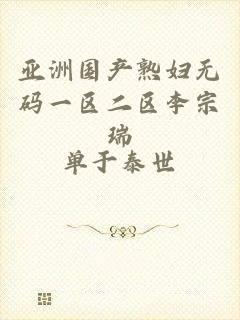 亚洲国产熟妇无
码一区二区李宗
瑞
单于泰世